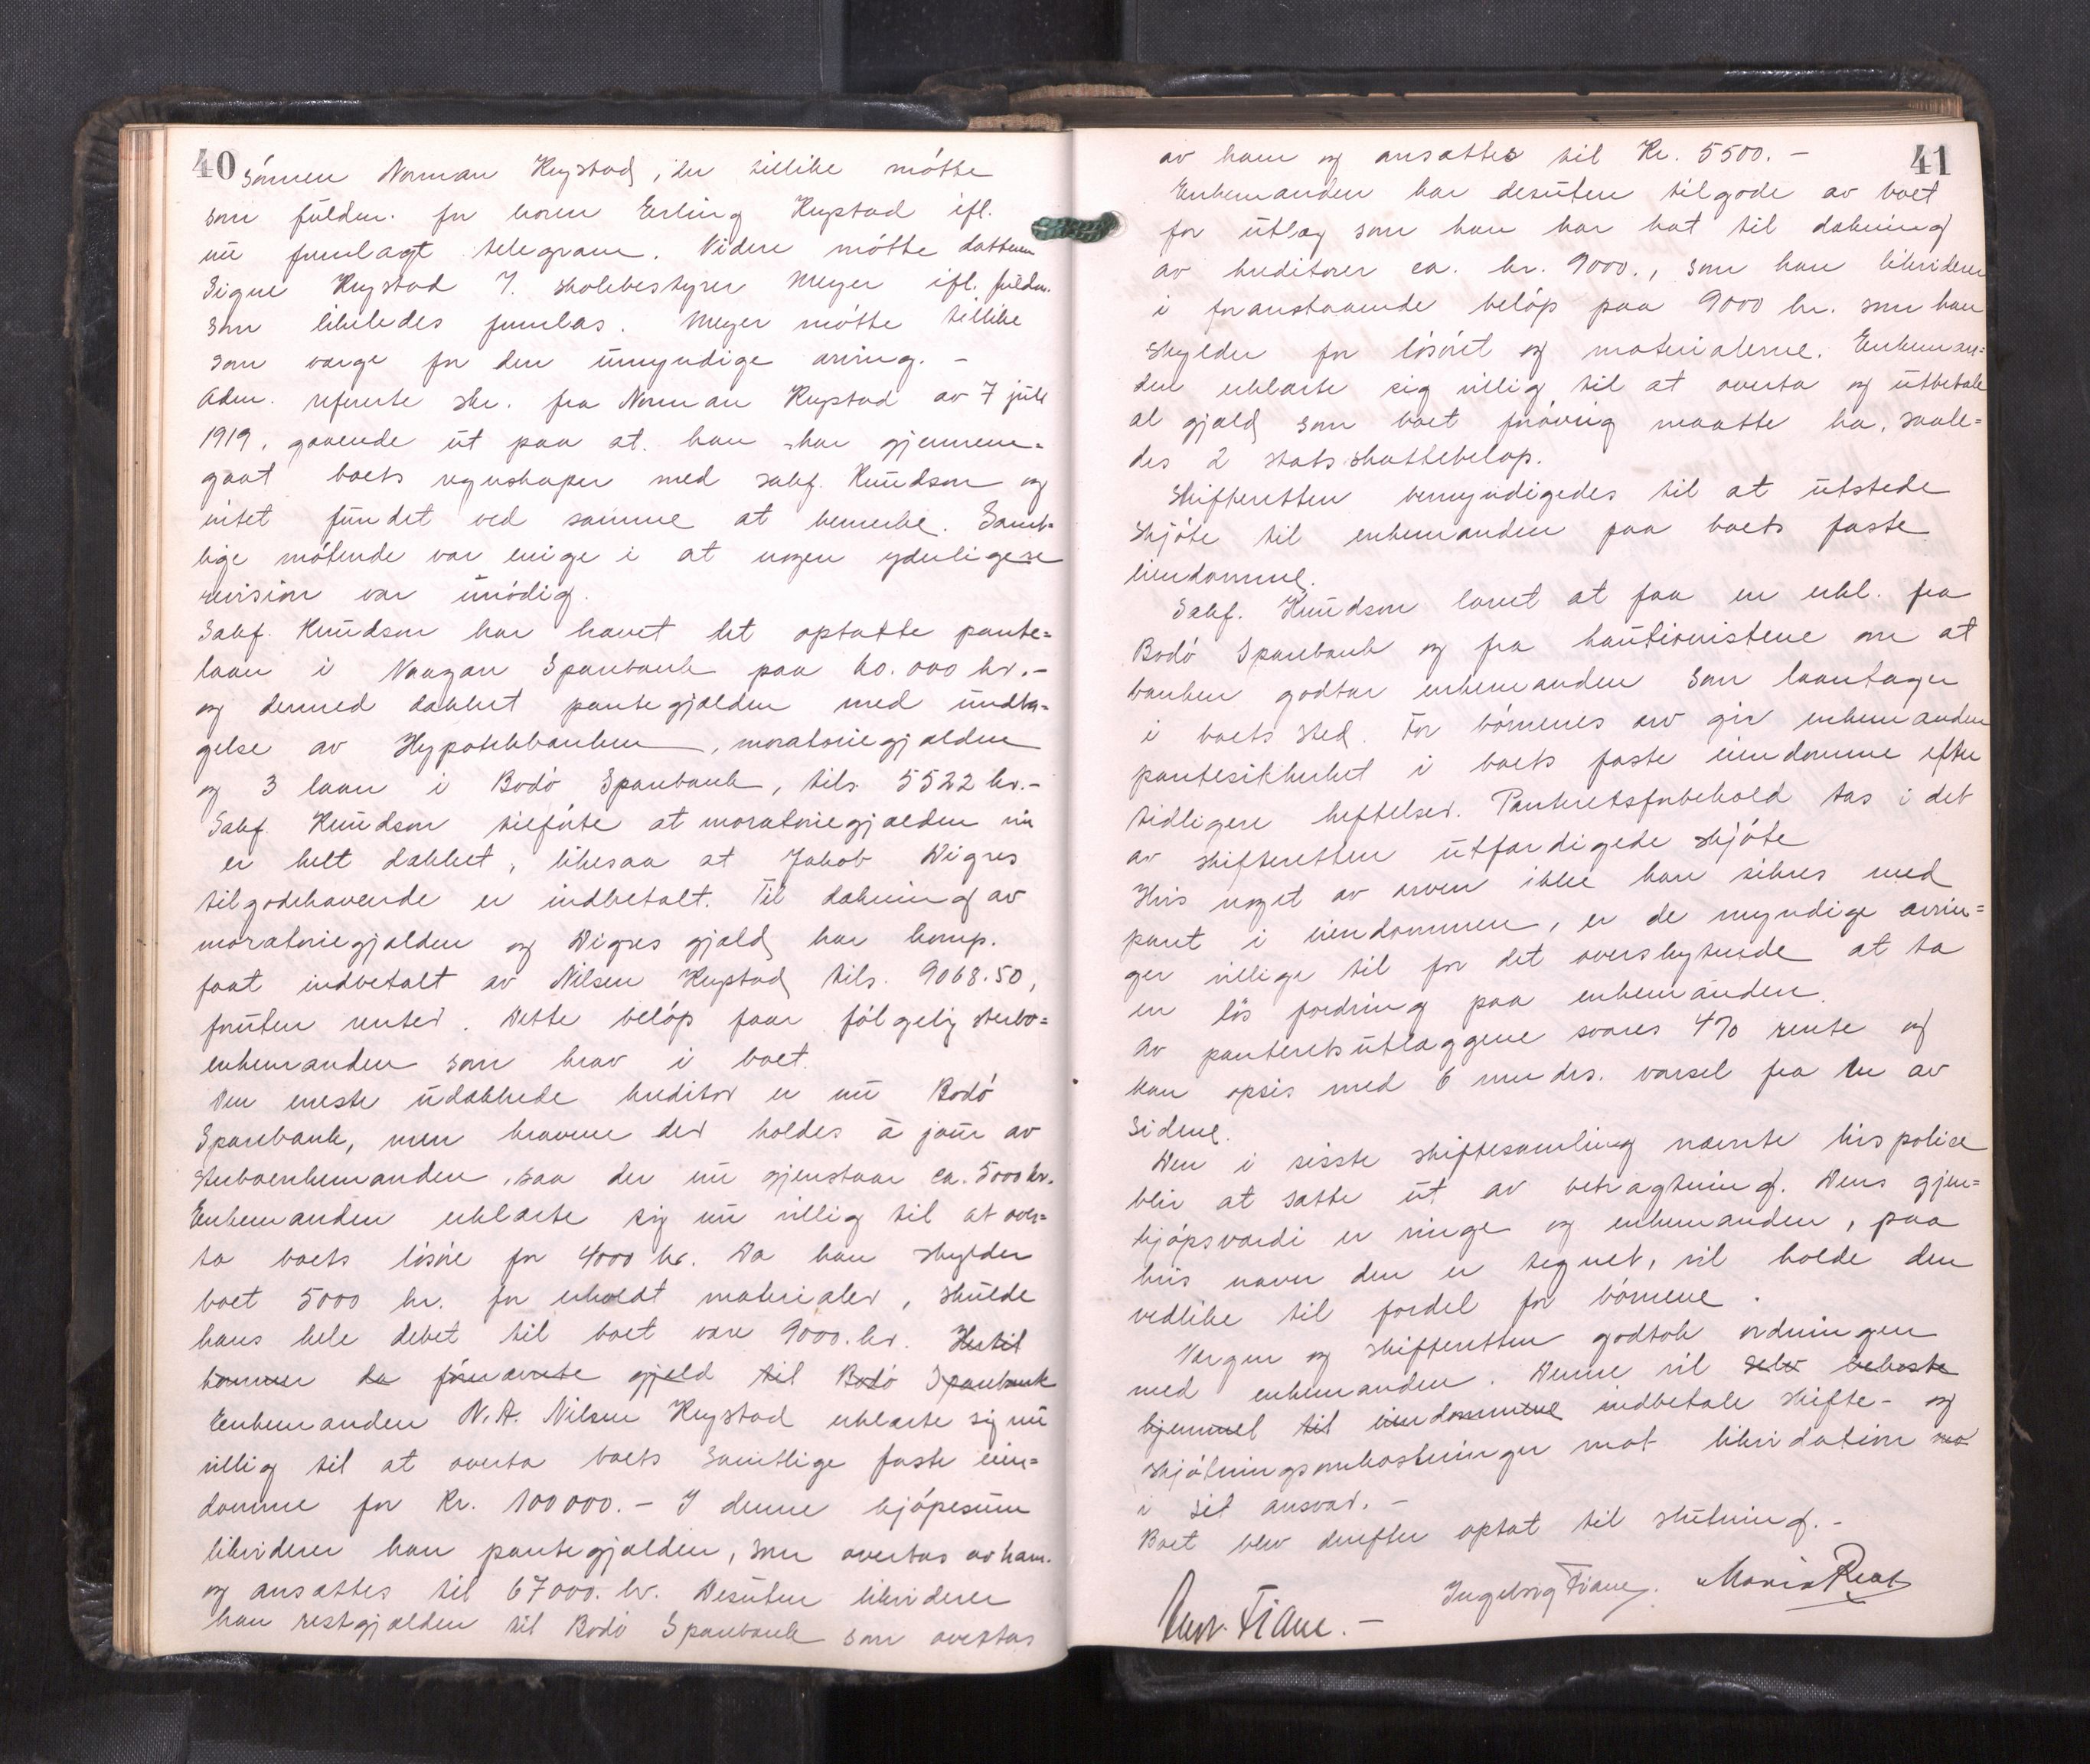 40
sönnen Norman Kugstad, der tillike mötte
som fuldm. for broren Erling Kugstad ifl.
nu fremlagt telegram. Videre mötte datteren
Signe Kugstad v. skolebestyrer Meyer ifl. fuldm.
som likeledes fremlas. Meyer mötte tillike
som værge for den umyndige arving. -
Adm. refererte skr. fra Norman Kugstad av 7 juli
1919, gaaende ut paa at han har gjennem-
gaat boets regnskaper med sakf. Knudson og
intet fundet ved samme at bemerke. Samt-
lige mötende var enige i at nogen yderligere
revision var unödig.
Sakf. Knudson har hævet det optatte pante-
laan i Vaagan Sparebank paa 60.000 kr. -
og dermed dækket pantegjælden med undta-
gelse av Hypotekbanken, moratoriegjælden
og 3 laan i Bodö Sparebank, tils. 5522 kr. -
Sakf. Knudson tilförte at moratoriegjælden nu
er helt dækket, likesaa at Jakob Digres
tilgodehavende er indbetalt. Til dækning av
moratoriegjælden og Digres gjæld har komp.
faat indbetalt av Nilsen Kugstad tils. 9068.50,
foruten renter. Dette belöp faar fölgelig sterbo-
enkemanden som krav i boet.
Den eneste udækkede kreditor er nu Bodö
Sparebank, men kravene der holdes à jour av
sterboenkemanden, saa der nu gjenstaar ca. 5000 kr.
Enkemanden erklærte sig nu villig til at over-
ta boets lösöre for 4000 kr. Da han skylder
boet 5000 kr. for erholdt materialer, skulde
hans hele debet til boet være 9000. kr. Hertil
kommer da fornævnte gjæld til Bodö Sparebank
Enkemanden N.A. Nilsen Kugstad erklærte sig nu
villig til at overta boets samtlige faste eien-
domme for Kr. 100000. - I denne kjöpesum
likviderer han pantegjælden, som overtas av ham
og ansættes til 67000. kr. Desuten likviderer
han restgjælden til Bodö Sparebank som overtas
41
av ham og ansættes til Kr. 5500. -
Enkemanden har desuten tilgode av boet
for utlæg som han har hat til dækning
av kreditorer ca. kr. 9000., som han likviderer
i foranstaaende belöp paa 9000 kr. som han
skylder for lösöret og materialerne. Enkeman-
den erklærte sig villig til at overta og utbetale
al gjæld som boet forövrig maatte ha, saale-
des 2 stats skattebelöp.
Skifteretten bemyndigedes til at utstede
skjöte til enkemanden paa boets faste
eiendomme.
Sakf. Knudson lovet at faa en erkl. fra
Bodö Sparebank og fra kautionistene om at
banken godtar enkemanden som laantager
i boets sted. For börnenes arv gir enkemanden
pantesikkerhet i boets faste eiendomme efter
tidligere heftelser. Panteretsforbehold tas i det
av skifteretten utfærdigede skjöte
Hvis noget av arven ikke kan sikres med
pant i eiendommen, er de myndige arvin-
ger villige til for det overskytende at ta
en lös fordring paa enkemanden.
Av panteretsutlæggene svares 4% rente og
kan opsis med 6 mndrs. varsel fra en av
siderne.
Den i sisste skiftesamling nævnte livspolice
blir at sætte ut av betragtning. Dens gjen-
kjöpsværdi er ringe og enkemanden, paa
hvis navn den er tegnet, vil holde den
vedlike til fordel for börnene.
Vergen og skifteretten godtok ordningen
med enkemanden. Denne vil selv bekoste
hjemmel til eiendommene indbetale skifte- og
skjötningsomkostninger mot likvidation
i sit ansvar. -
Boet blev derefter optat til slutning. -
Fiane. - Ingeborg Fiane. Maria